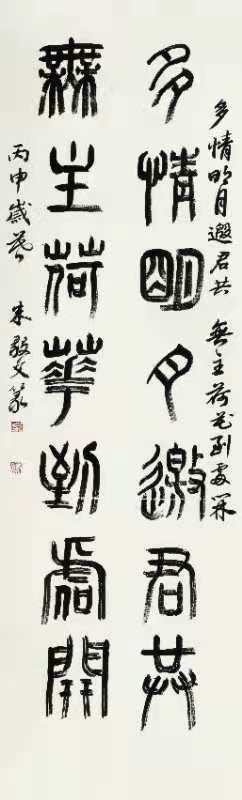 多情明月邀君共 無主荷花到處開
多情明月邀君共
無主荷華到處開
丙申歲暮 朱敬文篆